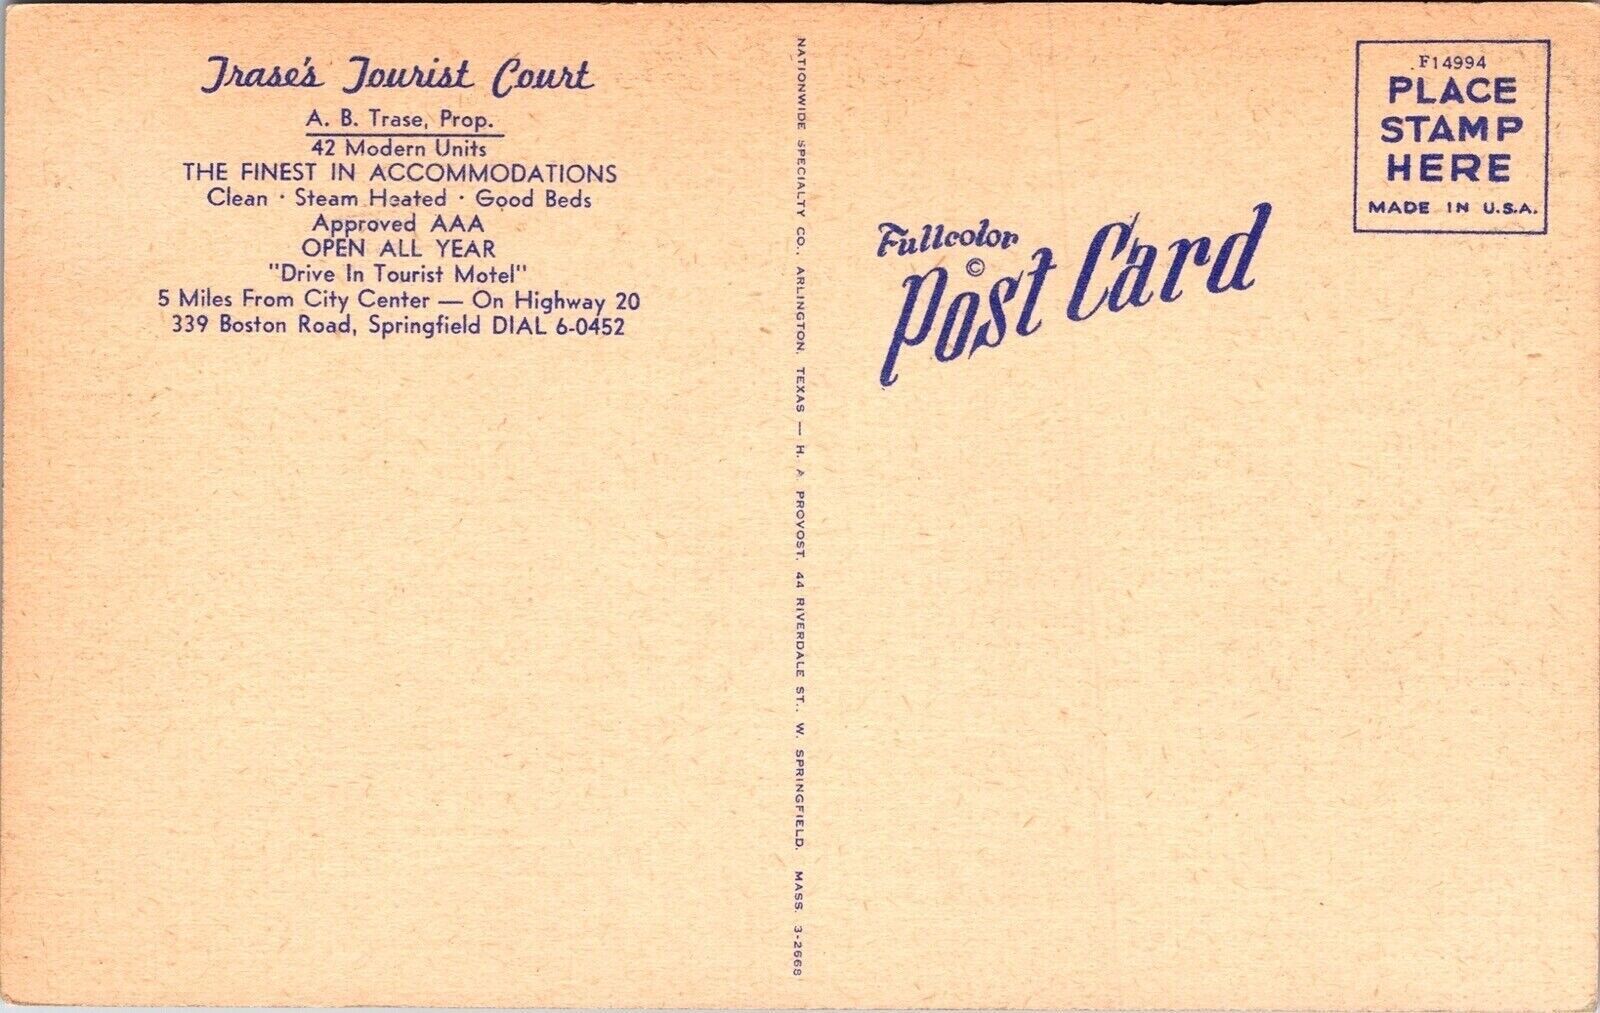 Trase's Tourist Court
A. B. Trase, Prop.
42 Modern Units
THE FINEST IN ACCOMMODATIONS
Clean · Steam Heated · Good Beds
Approved AAA
OPEN ALL YEAR
"Drive In Tourist Motel"
5 Miles From City Center — On Highway 20
339 Boston Road, Springfield DIAL 6-0452
NATIONWIDE SPECIALTY CO., ARLINGTON, TEXAS — H. A PROVOST, 44 RIVERDALE ST., W. SPRINGFIELD, MASS. 3-2668
Fullcolor
©
Post Card
F14994
PLACE
STAMP
HERE
MADE IN U.S.A.